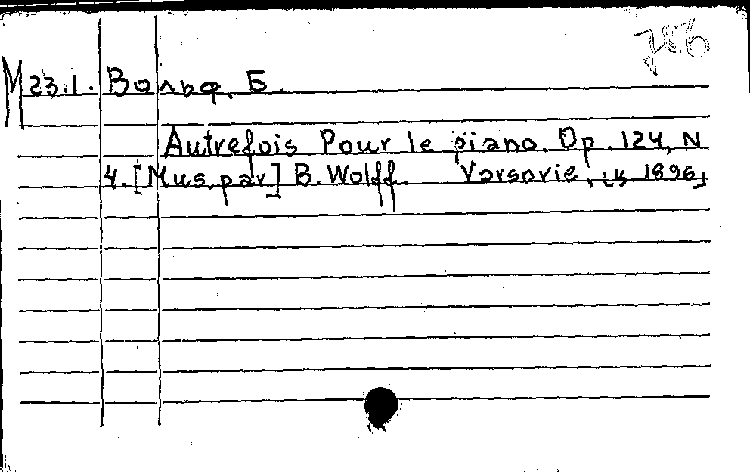 786
M 23.1. Вольф, Б.
Autrefois Pour le piano. Op. 124, N
4. [Mus. par] B. Wolff. Varsovie, 1896